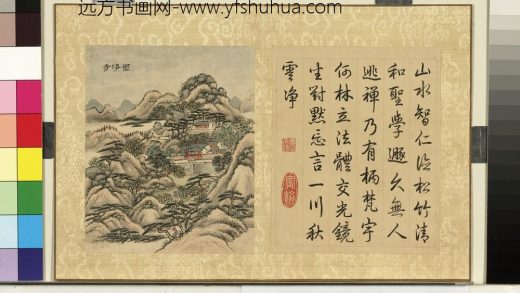 远方书画网-www.yfshuhua.com
山水智仁松竹清
和聖學邈久無人
逃禪乃有柄梵宇
何林立法體交光鏡
坐對默忘言一川秋
雲淨